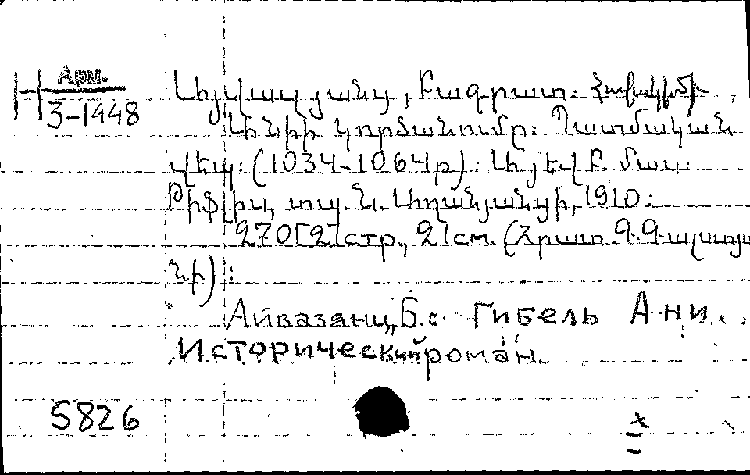 Н Арм.
3-1448
Այվազյանց, Բագրատ.
Անիի կործանումը: Պատմական
վեպ: (1034-1064թ): Ա և Բ մաս:
Թիֆլիս, տպ. Ն. Աղանյանցի, 1910:
270[2]стр., 21см. (Հրատ Գ. Գալստյա
նի):
Айвазянц, Б.: Гибель Ани.
Исторический роман.
5826
x